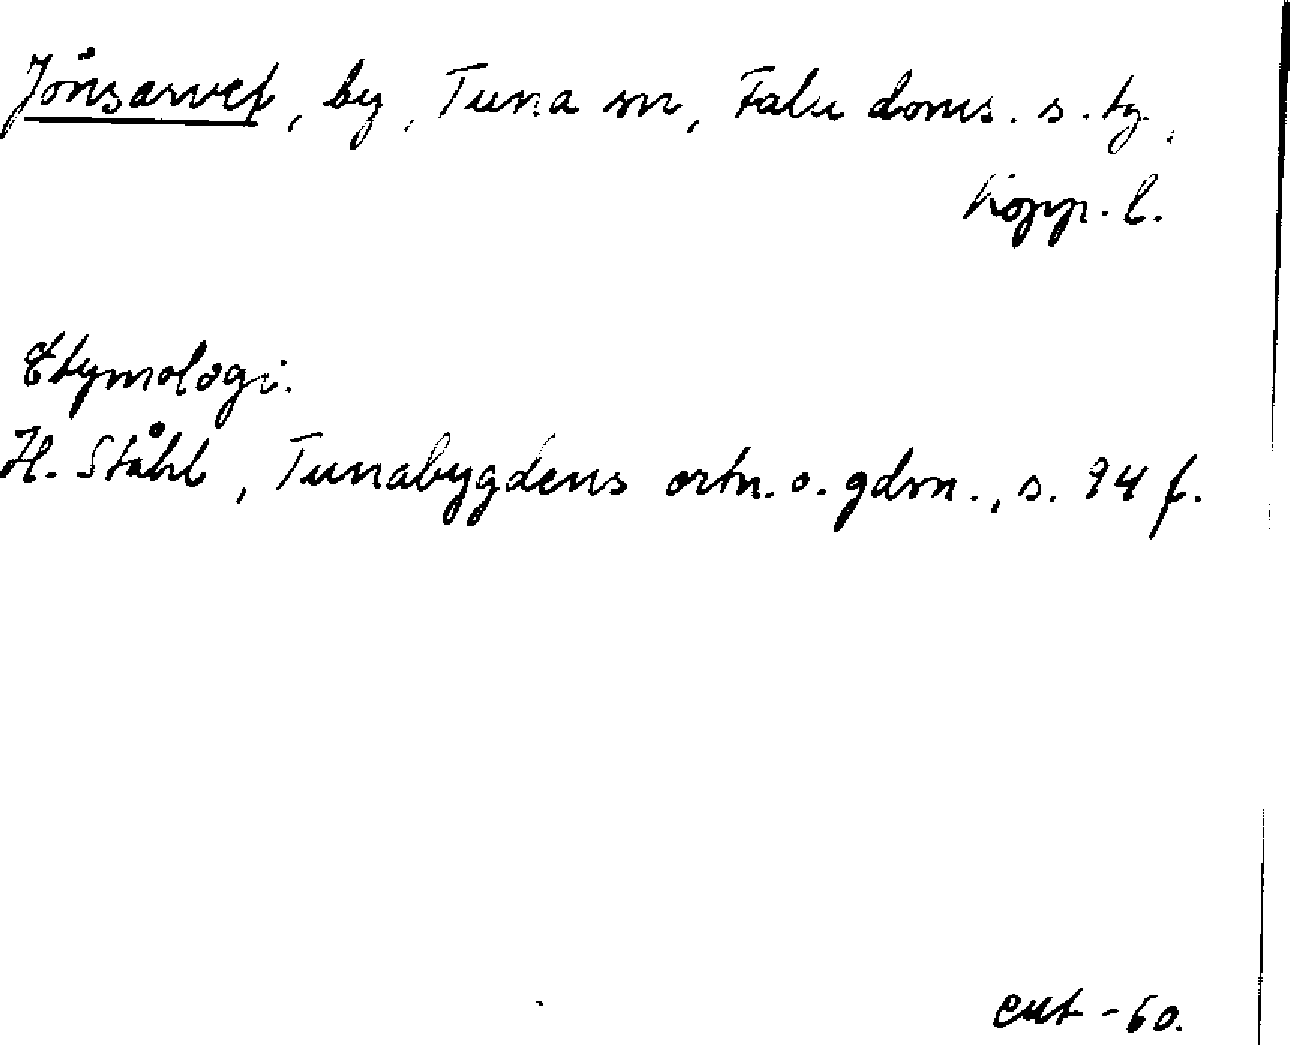 Jönsarvet, by, Tuna sn, Falu doms. s. tg,
Kopp. l.
Etymologi.
H. Ståhl, Tunabygdens ortn. o. gdsn., s. 94 f.
-60.